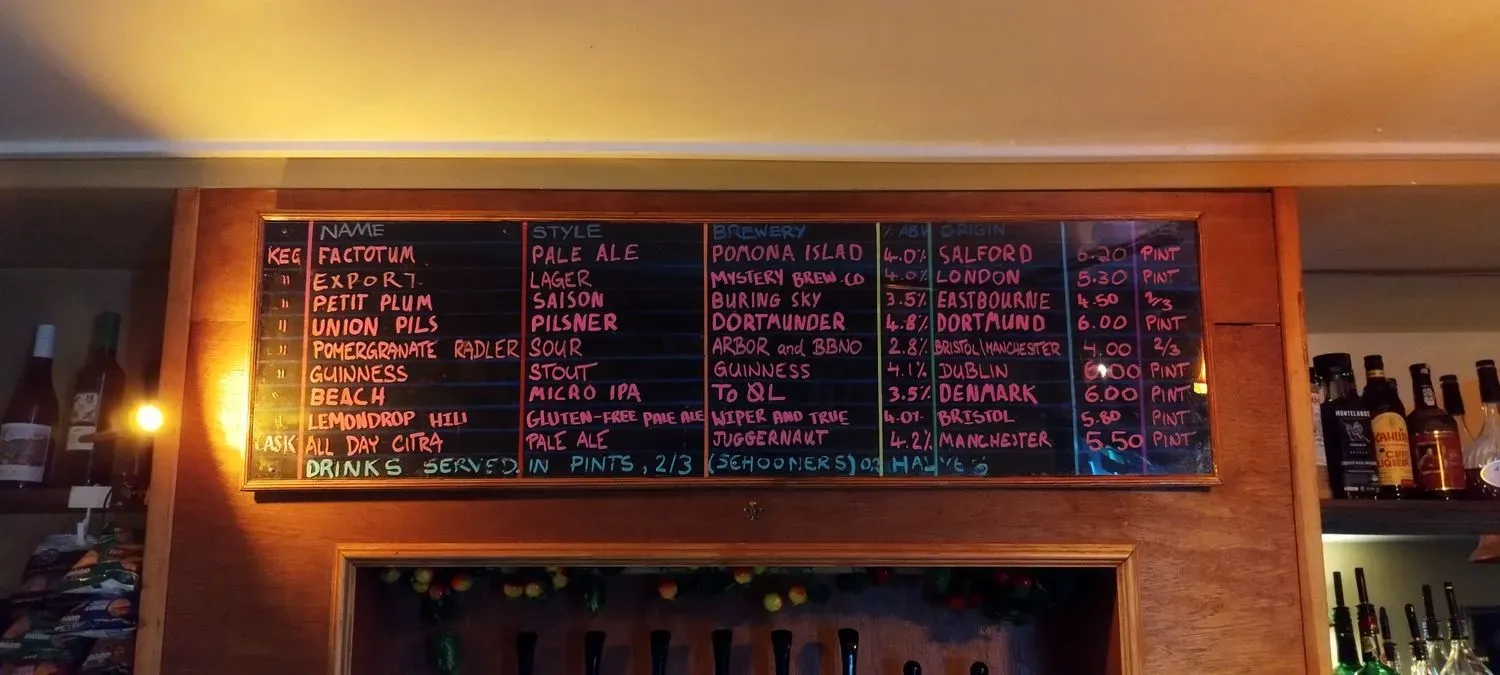 NAME STYLE BREWERY % ABV ORIGIN
KEG FACTOTUM PALE ALE POMONA ISLAD 4.0% SALFORD 6.20 PINT
" EXPORT LAGER MYSTERY BREW.CO 4.0% LONDON 5.30 PINT
" PETIT PLUM SAISON BURING SKY 3.5% EASTBOURNE 4.50 2/3
" UNION PILS PILSNER DORTMUNDER 4.8% DORTMUND 6.00 PINT
" POMERGRANATE RADLER SOUR ARBOR and BBNO 2.8% BRISTOL\MANCHESTER 4.00 2/3
" GUINNESS STOUT GUINNESS 4.1% DUBLIN PINT
" BEACH MICRO IPA TO ØL 3.5% DENMARK 6.00 PINT
" LEMONDROP HILL GLUTEN-FREE PALE ALE WIPER AND TRUE 4.0% BRISTOL 5.80 PINT
CASK ALL DAY CITRA PALE ALE JUGGERNAUT 4.2% MANCHESTER 5.50 PINT
DRINKS SERVED IN PINTS, 2/3 (SCHOONERS) OR HALVES
MONTELOBOS
KAHLÚA